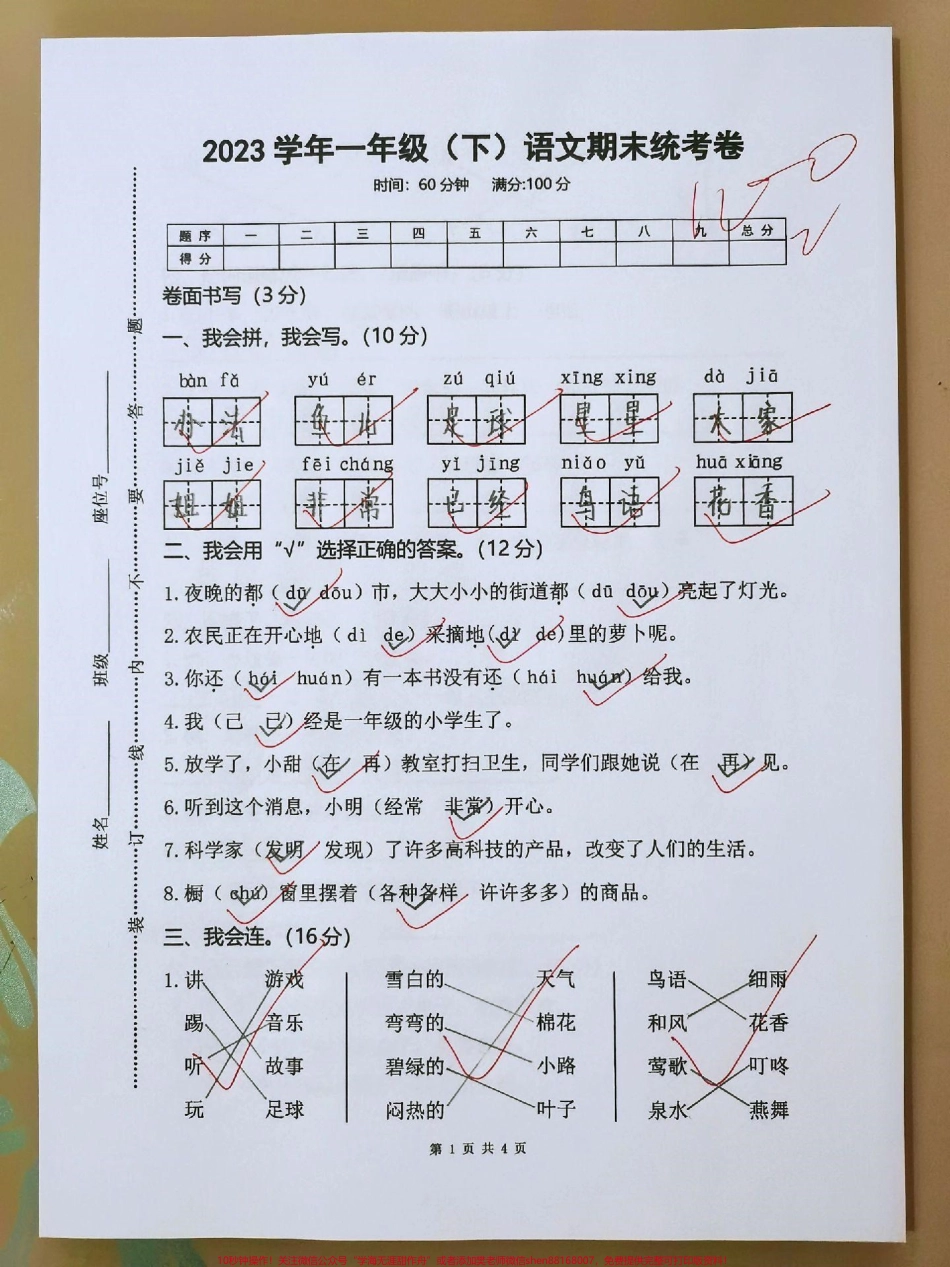 2023 学年一年级（下）语文期末统考卷
时间：60 分钟 满分:100 分
100
题 序 一 二 三 四 五 六 七 八 九 总 分
得 分
卷面书写（3 分）
一、我会拼，我会写。（10 分）
bàn fǎ yú ér zú qiú xīng xing dà jiā
办 法 鱼 儿 足 球 星 星 大 家
jiě jie fēi cháng yǐ jīng niǎo yǔ huā xiāng
姐 姐 非 常 已 经 鸟 语 花 香
二、我会用“√”选择正确的答案。（12 分）
1. 夜晚的都（ dū dōu）市，大大小小的街道都（ dū dōu）亮起了灯光。
2. 农民正在开心地（ dì de）采摘地（ dì de）里的萝卜呢。
3. 你还（ hái huán）有一本书没有还（ hái huán）给我。
4. 我（己 已）经是一年级的小学生了。
5. 放学了，小甜（在 再）教室打扫卫生，同学们跟她说（在 再）见。
6. 听到这个消息，小明（经常 非常）开心。
7. 科学家（发明 发现）了许多高科技的产品，改变了人们的生活。
8. 橱（ chú）窗里摆着（各种各样 许许多多）的商品。
三、我会连。（16 分）
1. 讲 游戏 雪白的 天气 鸟语 细雨
踢 音乐 弯弯的 棉花 和风 花香
听 故事 碧绿的 小路 莺歌 叮咚
玩 足球 闷热的 叶子 泉水 燕舞
第 1 页 共 4 页
姓名 班级 座位号
装 订 线 内 不 要 答 题